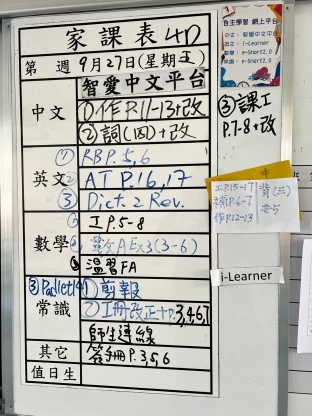 家課表4D
第 週 9月27日(星期五)
智愛中文平台
中文
①作P.11-13+改
②詞(四)+改
③課工
P.7-8+改
英文
① RB P.5,6
② AT P.16,17
③ Dict. 2 Rev.
數學
工P.5-8
數AEx3(3-6)
溫習FA
常識
①剪報
②工冊改正+P.3,4,6,7
師生連線
其它
答手冊P.3,5,6
值日生
自主學習 網上平台
中文：智愛中文平台
英文：i-Learner
數學：e-Smart2.0
常識：e-Smart2.0
工P.15-17
P.6-7
作P.12-13
i-Learner